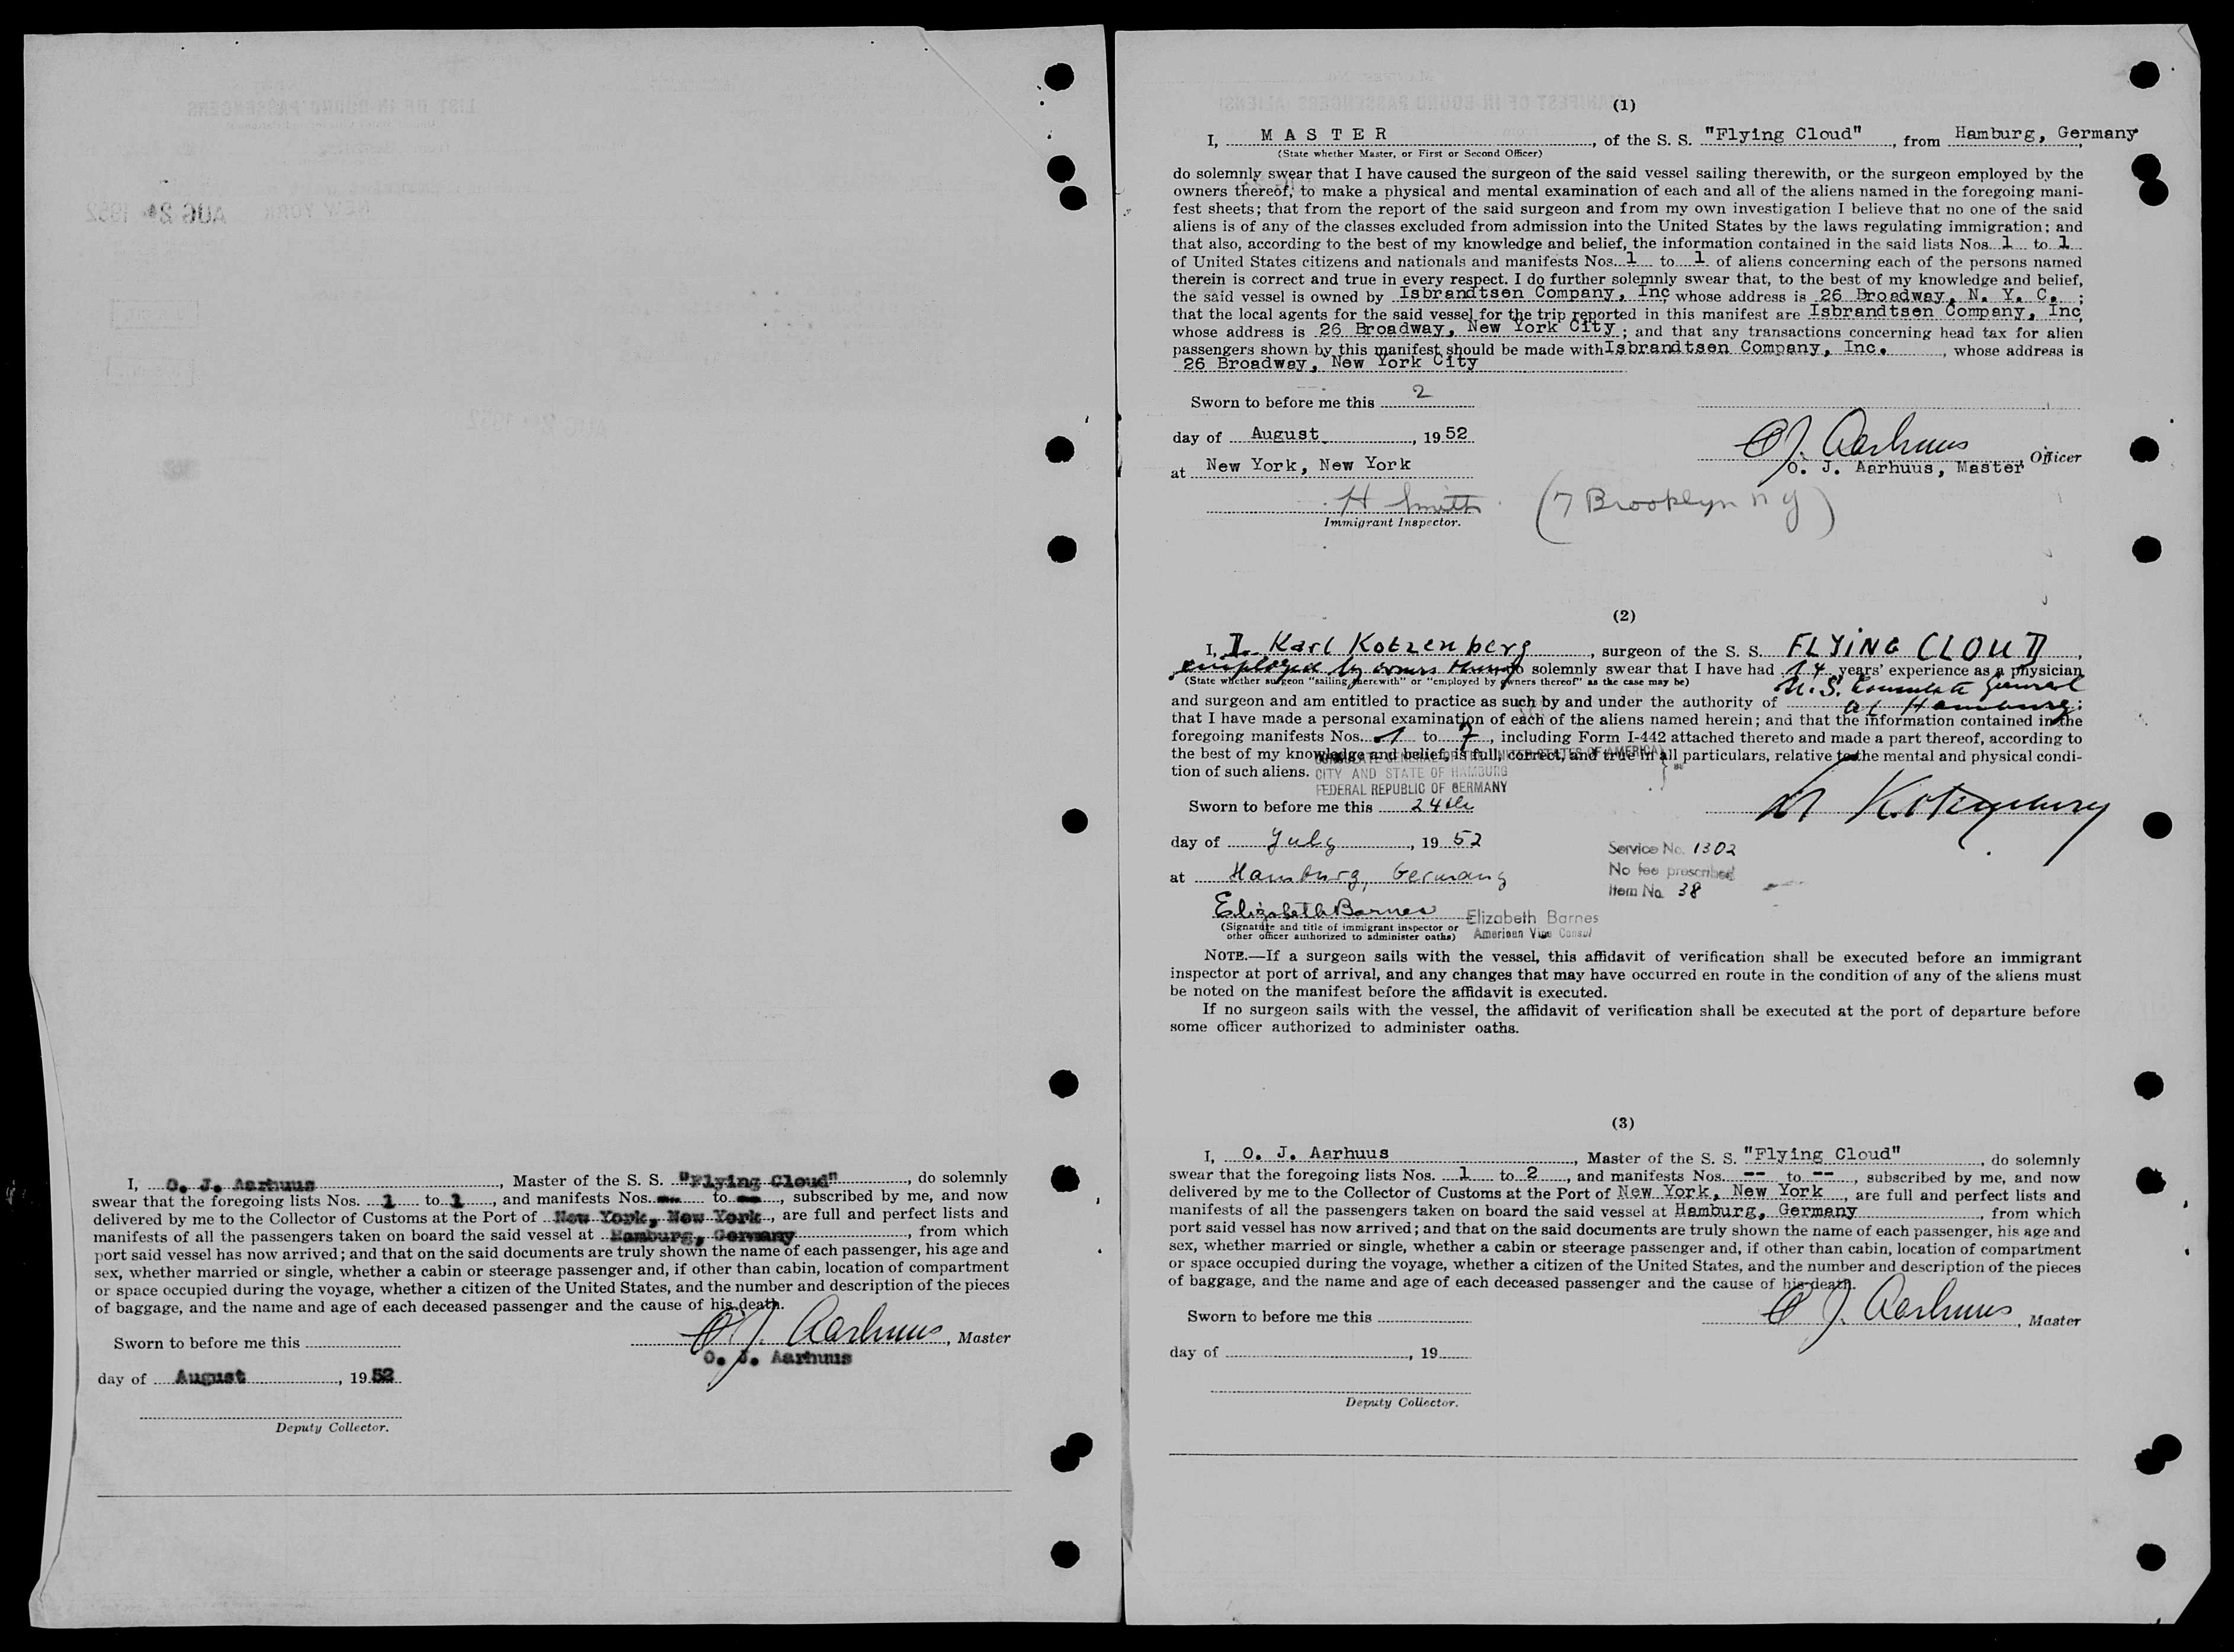 I, O. J. Aarhuus, Master of the S. S. "Flying Cloud", do solemnly
swear that the foregoing lists Nos. 1 to 1, and manifests Nos. -- to --, subscribed by me, and now
delivered by me to the Collector of Customs at the Port of New York, New York, are full and perfect lists and
manifests of all the passengers taken on board the said vessel at Hamburg, Germany, from which
port said vessel has now arrived; and that on the said documents are truly shown the name of each passenger, his age and
sex, whether married or single, whether a cabin or steerage passenger and, if other than cabin, location of compartment
or space occupied during the voyage, whether a citizen of the United States, and the number and description of the pieces
of baggage, and the name and age of each deceased passenger and the cause of his death.
Sworn to before me this
O J. Aarhuus, Master
O. J. Aarhuus
day of August, 1952
Deputy Collector.
(1)
I, MASTER, of the S. S. "Flying Cloud", from Hamburg, Germany,
(State whether Master, or First or Second Officer)
do solemnly swear that I have caused the surgeon of the said vessel sailing therewith, or the surgeon employed by the
owners thereof, to make a physical and mental examination of each and all of the aliens named in the foregoing mani-
fest sheets; that from the report of the said surgeon and from my own investigation I believe that no one of the said
aliens is of any of the classes excluded from admission into the United States by the laws regulating immigration; and
that also, according to the best of my knowledge and belief, the information contained in the said lists Nos. 1 to 1
of United States citizens and nationals and manifests Nos. 1 to 1 of aliens concerning each of the persons named
therein is correct and true in every respect. I do further solemnly swear that, to the best of my knowledge and belief,
the said vessel is owned by Isbrandtsen Company, Inc, whose address is 26 Broadway, N. Y. C.;
that the local agents for the said vessel for the trip reported in this manifest are Isbrandtsen Company, Inc,
whose address is 26 Broadway, New York City; and that any transactions concerning head tax for alien
passengers shown by this manifest should be made with Isbrandtsen Company, Inc., whose address is
26 Broadway, New York City
Sworn to before me this 2
day of August, 1952
O J. Aarhuus, Officer
O. J. Aarhuus, Master
at New York, New York
H Smith (7 Brooklyn N Y)
Immigrant Inspector.
(2)
I, Karl Kotzenberg, surgeon of the S. S. FLYING CLOUD,
employed by owners thereof do solemnly swear that I have had 14 years' experience as a physician
(State whether surgeon "sailing therewith" or "employed by owners thereof" as the case may be)
U.S. Consulate General
and surgeon and am entitled to practice as such by and under the authority of at Hamburg;
that I have made a personal examination of each of the aliens named herein; and that the information contained in the
foregoing manifests Nos. 1 to 7, including Form I-442 attached thereto and made a part thereof, according to
the best of my knowledge and belief, is full, correct, and true in all particulars, relative to the mental and physical condi-
CONSULATE GENERAL OF THE UNITED STATES OF AMERICA
tion of such aliens. CITY AND STATE OF HAMBURG
FEDERAL REPUBLIC OF GERMANY
Sworn to before me this 24th
day of July, 1952
Service No. 1302
No fee prescribed
Item No. 38
at Hamburg, Germany
Elizabeth Barnes Elizabeth Barnes
American Vice Consul
(Signature and title of immigrant inspector or
other officer authorized to administer oaths)
NOTE.—If a surgeon sails with the vessel, this affidavit of verification shall be executed before an immigrant
inspector at port of arrival, and any changes that may have occurred en route in the condition of any of the aliens must
be noted on the manifest before the affidavit is executed.
If no surgeon sails with the vessel, the affidavit of verification shall be executed at the port of departure before
some officer authorized to administer oaths.
(3)
I, O. J. Aarhuus, Master of the S. S. "Flying Cloud", do solemnly
swear that the foregoing lists Nos. 1 to 2, and manifests Nos. -- to --, subscribed by me, and now
delivered by me to the Collector of Customs at the Port of New York, New York, are full and perfect lists and
manifests of all the passengers taken on board the said vessel at Hamburg, Germany, from which
port said vessel has now arrived; and that on the said documents are truly shown the name of each passenger, his age and
sex, whether married or single, whether a cabin or steerage passenger and, if other than cabin, location of compartment
or space occupied during the voyage, whether a citizen of the United States, and the number and description of the pieces
of baggage, and the name and age of each deceased passenger and the cause of his death.
Sworn to before me this
O J. Aarhuus, Master
day of , 19
Deputy Collector.